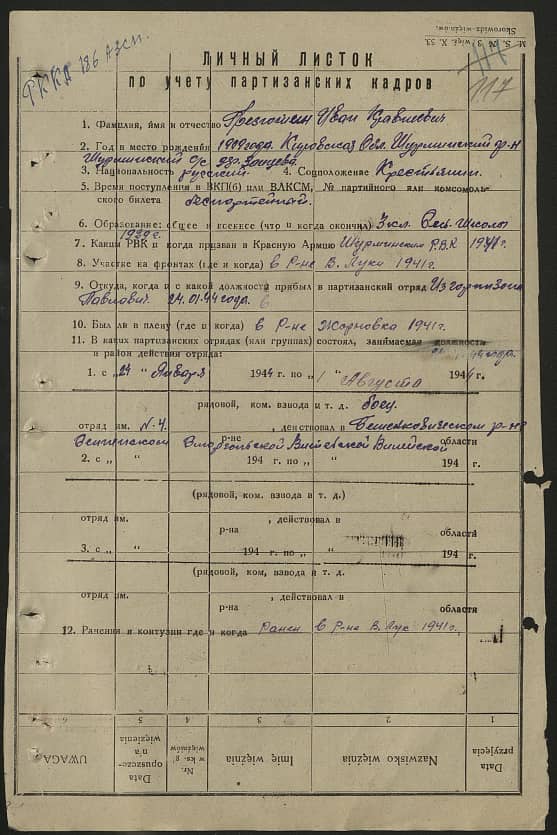 РККА 186 АЗСП.
M. S. W. 3/więź. X. 53.
Skorowidz więźniów.
117
ЛИЧНЫЙ ЛИСТОК
по учету партизанских кадров
1. Фамилия, имя и отчество Иван Павлович
2. Год и место рождения 1909 года. Кировская Обл. Шурминский р-н
Шурминский с/с дер. Зайцева.
3. Национальность русский 4. Соцположение Крестьянин.
5. Время поступления в ВКП(б) или ВЛКСМ, № партийного или комсомоль-
ского билета беспартейный.
6. Образование: общее и военное (что и когда окончил) 3 кл. Сель. Школы
7. Каким РВК и когда призван в Красную Армию Шурминским Р.В.К 1941 г.
8. Участие на фронтах (где и когда) в Р-не В. Луки 1941 г.
9. Откуда, когда и с какой должности прибыл в партизанский отряд Из гарнизона
Павлович. 24.01.44 года.
10. Был ли в плену (где и когда) в Р-не Жарновка 1941 г.
11. В каких партизанских отрядах (или группах) состоял, занимаемая должность
и район действия отряда:
1. с „24 “ Января 1944 г. по „1 “ Августа 1944 г.
рядовой, ком. взвода и т. д. боец.
отряд им. №-4. , действовал в Бешенковическом р-не
р-не Витебской Вилейской области
2. с „ “ 194 г. по „ “ 194 г.
(рядовой, ком. взвода и т. д.)
отряд им. , действовал в
р-на области
3. с „ “ 194 г. по „ “ 194 г.
(рядовой, ком, взвода и т. д.
отряд им. , действовал в
р-на области
12. Ранения и контузии где и когда Ранен в Р-не В. Лук 1941 г.
1 2 3 4 5 6
Data przyjęcia
Nazwisko więźnia
Imię więźnia
Nr. w ks. g. więźniów
Data opuszcze-n'a więzienia
UWAGA